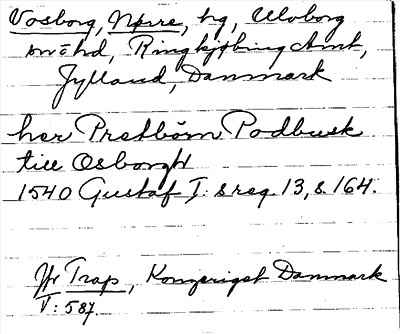 Vosborg, Nørre, hg, Ulvborg
sn o hd, Ringkjøbing Amt,
Jylland, Danmark
her Predbørn Podbusk
till Osborgh
1540 Gustaf I:s reg. 13, s. 164.
Jfr Trap, Kongeriget Danmark
V: 587.